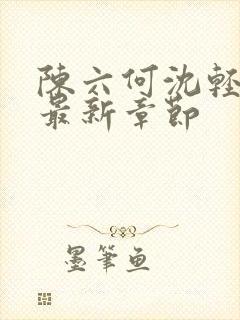 陳六何沈輕
最新章節
墨筆魚